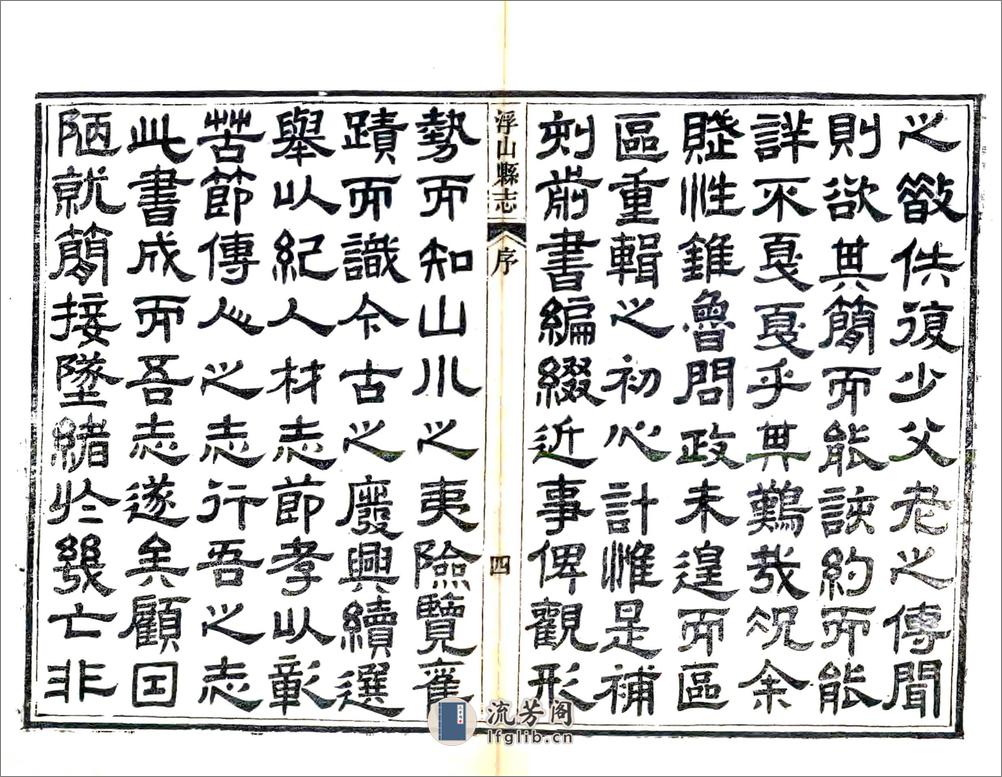 之散佚復少父老之傳聞
則欲其簡而能該約而能
詳不戛戛乎其難哉況余
賦性錐魯問政未遑而區
區重輯之初心計惟是補
刻前書編綴近事俾觀形
浮山縣志 序 四
勢而知山川之夷險覽舊
蹟而識今古之廢興續選
舉以紀人材志節孝以彰
苦節傳人之志行吾之志
此書成而吾志遂矣顧因
陋就簡接墜緒於幾亡非
流芳阁
lfglib.cn